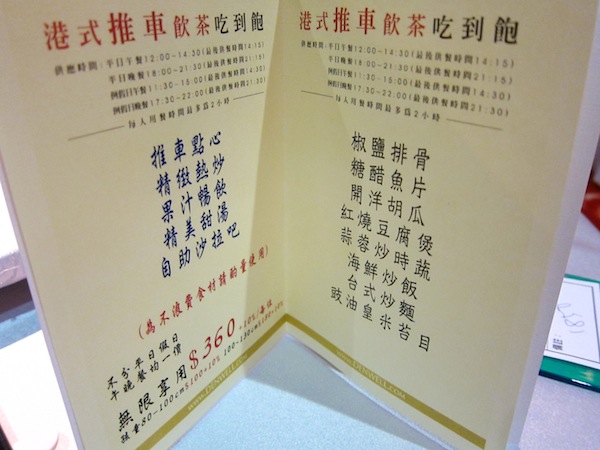 港式推車飲茶吃到飽
供應時間:平日午餐12:00~14:30(最後供餐時間14:15)
平日晚餐18:00~21:30(最後供餐時間21:15)
例假日午餐11:30~15:00(最後供餐時間14:30)
例假日晚餐17:30~22:00(最後供餐時間21:30)
每人用餐時間最多為2小時
推車點心
精緻熱炒
果汁暢飲
精美甜湯
自助沙拉吧
(為不浪費食材請酌量使用)
不分平日假日
午晚餐均一價
無限享用$360+10%/每位
孩童80~100cm$100+10% 100~130cm$180+10%
www.DENWELL.com
港式推車飲茶吃到飽
供應時間:平日午餐12:00~14:30(最後供餐時間14:15)
平日晚餐18:00~21:30(最後供餐時間21:15)
例假日午餐11:30~15:00(最後供餐時間14:30)
例假日晚餐17:30~22:00(最後供餐時間21:30)
每人用餐時間最多為2小時
椒鹽排骨
糖醋魚片
開洋胡瓜
紅燒豆腐煲
蒜蓉炒時蔬
海鮮炒飯
台式炒麵
豉油皇米苔目
www.DENWELL.com